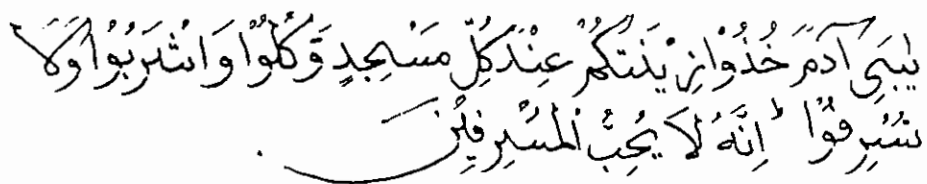 يٰبَنِىْ آدَمَ خُذُوْا زِيْنَتَكُمْ عِنْدَ كُلِّ مَسْجِدٍ وَّكُلُوْا وَاشْرَبُوْا وَلَا
تُسْرِفُوْا ۚ اِنَّهٗ لَا يُحِبُّ الْمُسْرِفِيْنَ